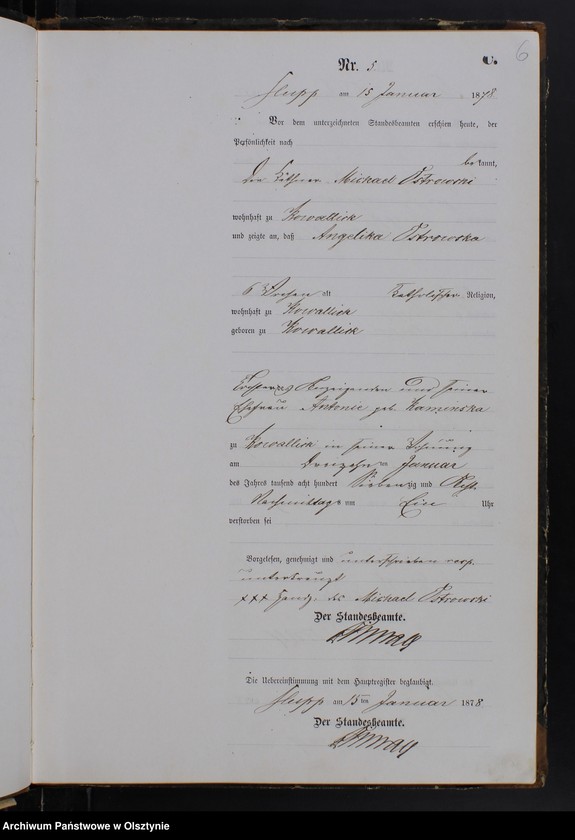 6
Nr. 5.
C.
Slupp am 15 Januar 1878.
Vor dem unterzeichneten Standesbeamten erschien heute, der
Persönlichkeit nach
bekannt,
Der Käthner Michael Ostrowski
wohnhaft zu Kowallick
und zeigte an, daß Angelika Ostrowska
6 Wochen alt Katholischer Religion,
wohnhaft zu Kowallick
geboren zu Kowallick
Tochter des Anzeigenden und seiner
Ehefrau Antonie geb. Kaminska
zu Kowallick in seiner Wohnung
am Dreizehnten Januar
des Jahres tausend acht hundert Siebenzig und Acht
Nachmittags um Eins Uhr
verstorben sei
Vorgelesen, genehmigt und unterschrieben resp.
unterkreuzt
+++ Handz. des Michael Ostrowski
Der Standesbeamte.
Die Uebereinstimmung mit dem Hauptregister beglaubigt.
Slupp am 15ten Januar 1878
Der Standesbeamte.
Archiwum Państwowe w Olsztynie